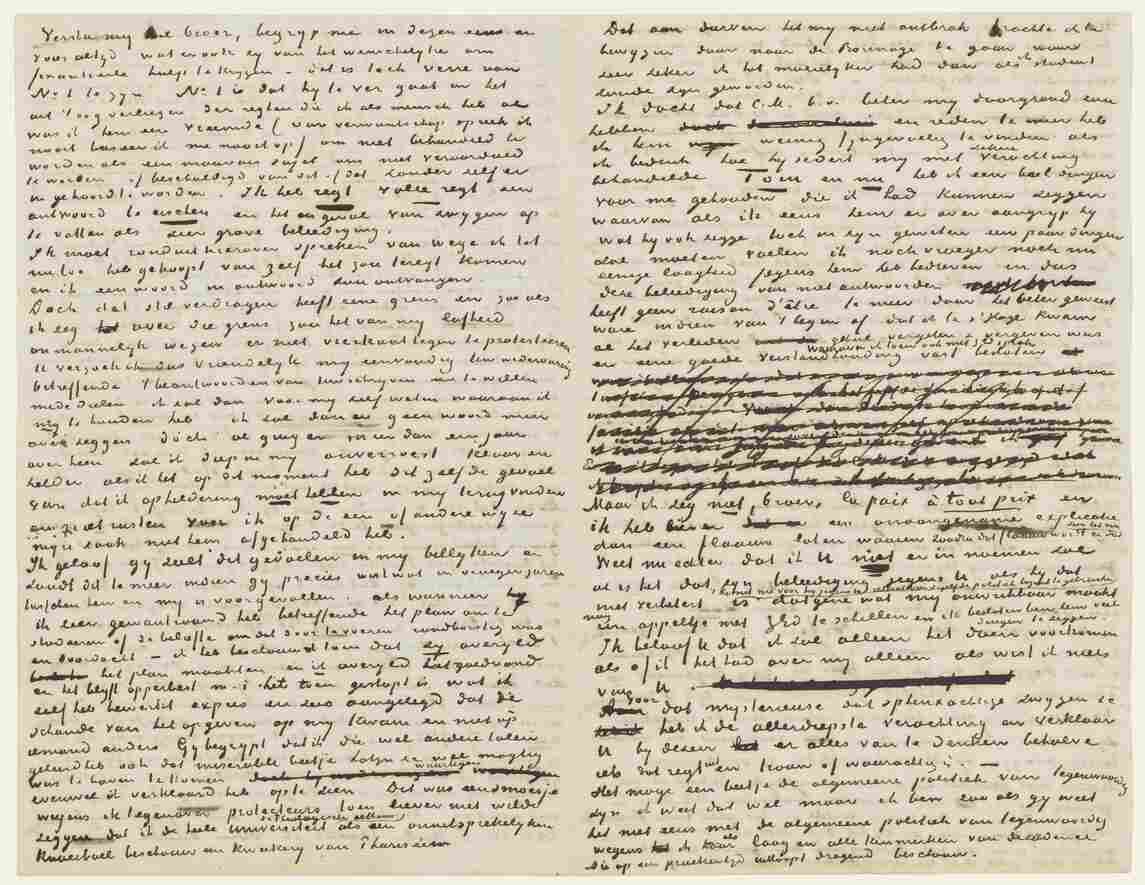 Versta my wel broer, begryp me in dezen en
voor altyd wat er ook zy van het wenschelyke om
financieele hulp te krygen – dat is toch verre van
No 1 te zyn No 1 is dat hy te ver gaat in het
uit 't oog verliezen der regten die ik als mensch heb al
was ik hem een vreemde (van verwantschap spreek ik
nooit baseer ik me nooit op) om niet behandeld te
worden als een mauvais sujet om niet veroordeeld
te worden of beschuldigd van dit of dat zonder zelf er
in gehoord te worden. Ik heb regt volle regt een
antwoord te eischen en het in geval van zwygen op
te vatten als zeer grove beleediging.
Ik moet ronduit hierover spreken van wege ik tot
nu toe heb gehoopt van zelf het zou teregt komen
en ik een woord in antwoord zou ontvangen.
Doch dat stil verdragen heeft eene grens en zoo als
ik zeg over die grens zou het van my lafheid
onmannelyk wezen er niet vierkant tegen te protesteeren
U verzoek ik dus vriendelyk my eenvoudig Uw wedervaring
betreffende 't beantwoorden van Uw schryven me te willen
mededeelen ik zal dan voor my zelf weten waaraan ik
my te houden heb ik zal dan er geen woord meer
over zeggen doch al ging er meer dan een jaar
over heen zal ik diep in my onverroest klaar en
helder als ik het op dit moment heb dit zelfde gevoel
van dat ik opheldering moet hebben in my terugvinden
en niet rusten voor ik op de een of andere wyze
myn zaak met hem afgehandeld heb.
Ik geloof gy zult dit gevoelen in my billyken en
zoudt dit te meer indien gy precies wist wat in vroeger jaren
tusschen hem en my is voorgevallen. als wanneer hy
ik leer gewantrouwd heb betreffende het plan om te
studeeren of de belofte om dit door te voeren rondborstig was
en doordacht – ik heb beschouwd toen dat zy overyld
het plan maakten en ik overyld het goedvond
en het blyft opperbest m.i. het toen gestopt is wat ik
zelf heb bewerkt expres en zoo aangelegd dat de
schande van het opgeven op my kwam en niet op
iemand anders Gy begrypt dat ik die wel andere talen
geleerd heb ook dat miserable beetje latyn &c wel magtig
was te boven te komen waartegen
evenwel ik verklaard heb op te zien Dit was een smoesje
wyens ik tegenover protecteurs toen liever niet wilde
zeggen dat ik de heele universiteit de theologische althans als een onuitsprekelyken
zwijnenboel beschouw een kweekery van Phariseïsm
Dat aan durven het my niet ontbrak trachtte ik te
bewyzen door naar de Borinage te gaan waar
zeer zeker ik het moeielyker had dan als ik student
zoude zyn geworden.
Ik dacht dat C.M. b.v. beter my doorgrond zou
hebben en reden te meer heb
ik hem weinig fijngevoelig te vinden als
ik bedenk hoe hy sedert my met zekere verachting
behandelde Toen en nu heb ik een boel dingen
voor me gehouden die ik had kunnen zeggen
waarvan als ik eens hem er over aangryp hy
wat hy ook zegge toch in zyn geweten een paar dingen
zal moeten voelen ik noch vroeger noch nu
eenige laagheid jegens hem heb bedreven en dus
deze beleediging van niet antwoorden
heeft geen raison d'être te meer daar het beter geweest
ware indien van 't begin af dat ik te 's Hage kwam
al het verleden geheel vergeten & vergeven was
waarvan ik toen ook met S. sprak
en eene goede verstandhouding vast besloten
Maar ik zeg niet, broer, la paix à tout prix en
ik heb liever een onaangename explicatie
dan een flaauw laten waaien zoodat dit
Weet nu echter dat ik U niet er in noemen zal
al is het dat zyn beleediging jegens U als hy dat
niet verbetert is datgene wat my onwrikbaar maakt
een appeltje met ZEd te schillen en ik besloten ben hem veel
dingen te zeggen.
Ik beloof U dat ik zal alleen het doen voorkomen
als of ik het had over my alleen als wist ik niets
van U
voor dat mysterieuse dat sphynxachtige zwygen &c
heb ik de allerdiepste verachting en verklaar
U by dezen er alles van te denken behalve
iets dat regt uit en trouw of waarachtig is. —
Het moge een beetje de algemeene politiek van tegenwoordig
zyn ik weet dat wel maar ik ben zoo als gy weet
het niet eens met de algemeene politiek van tegenwoordig
wegens ik haar als laag en alle kenmerken van decadence
die op een pruikentyd uitloopt dragend beschouw.